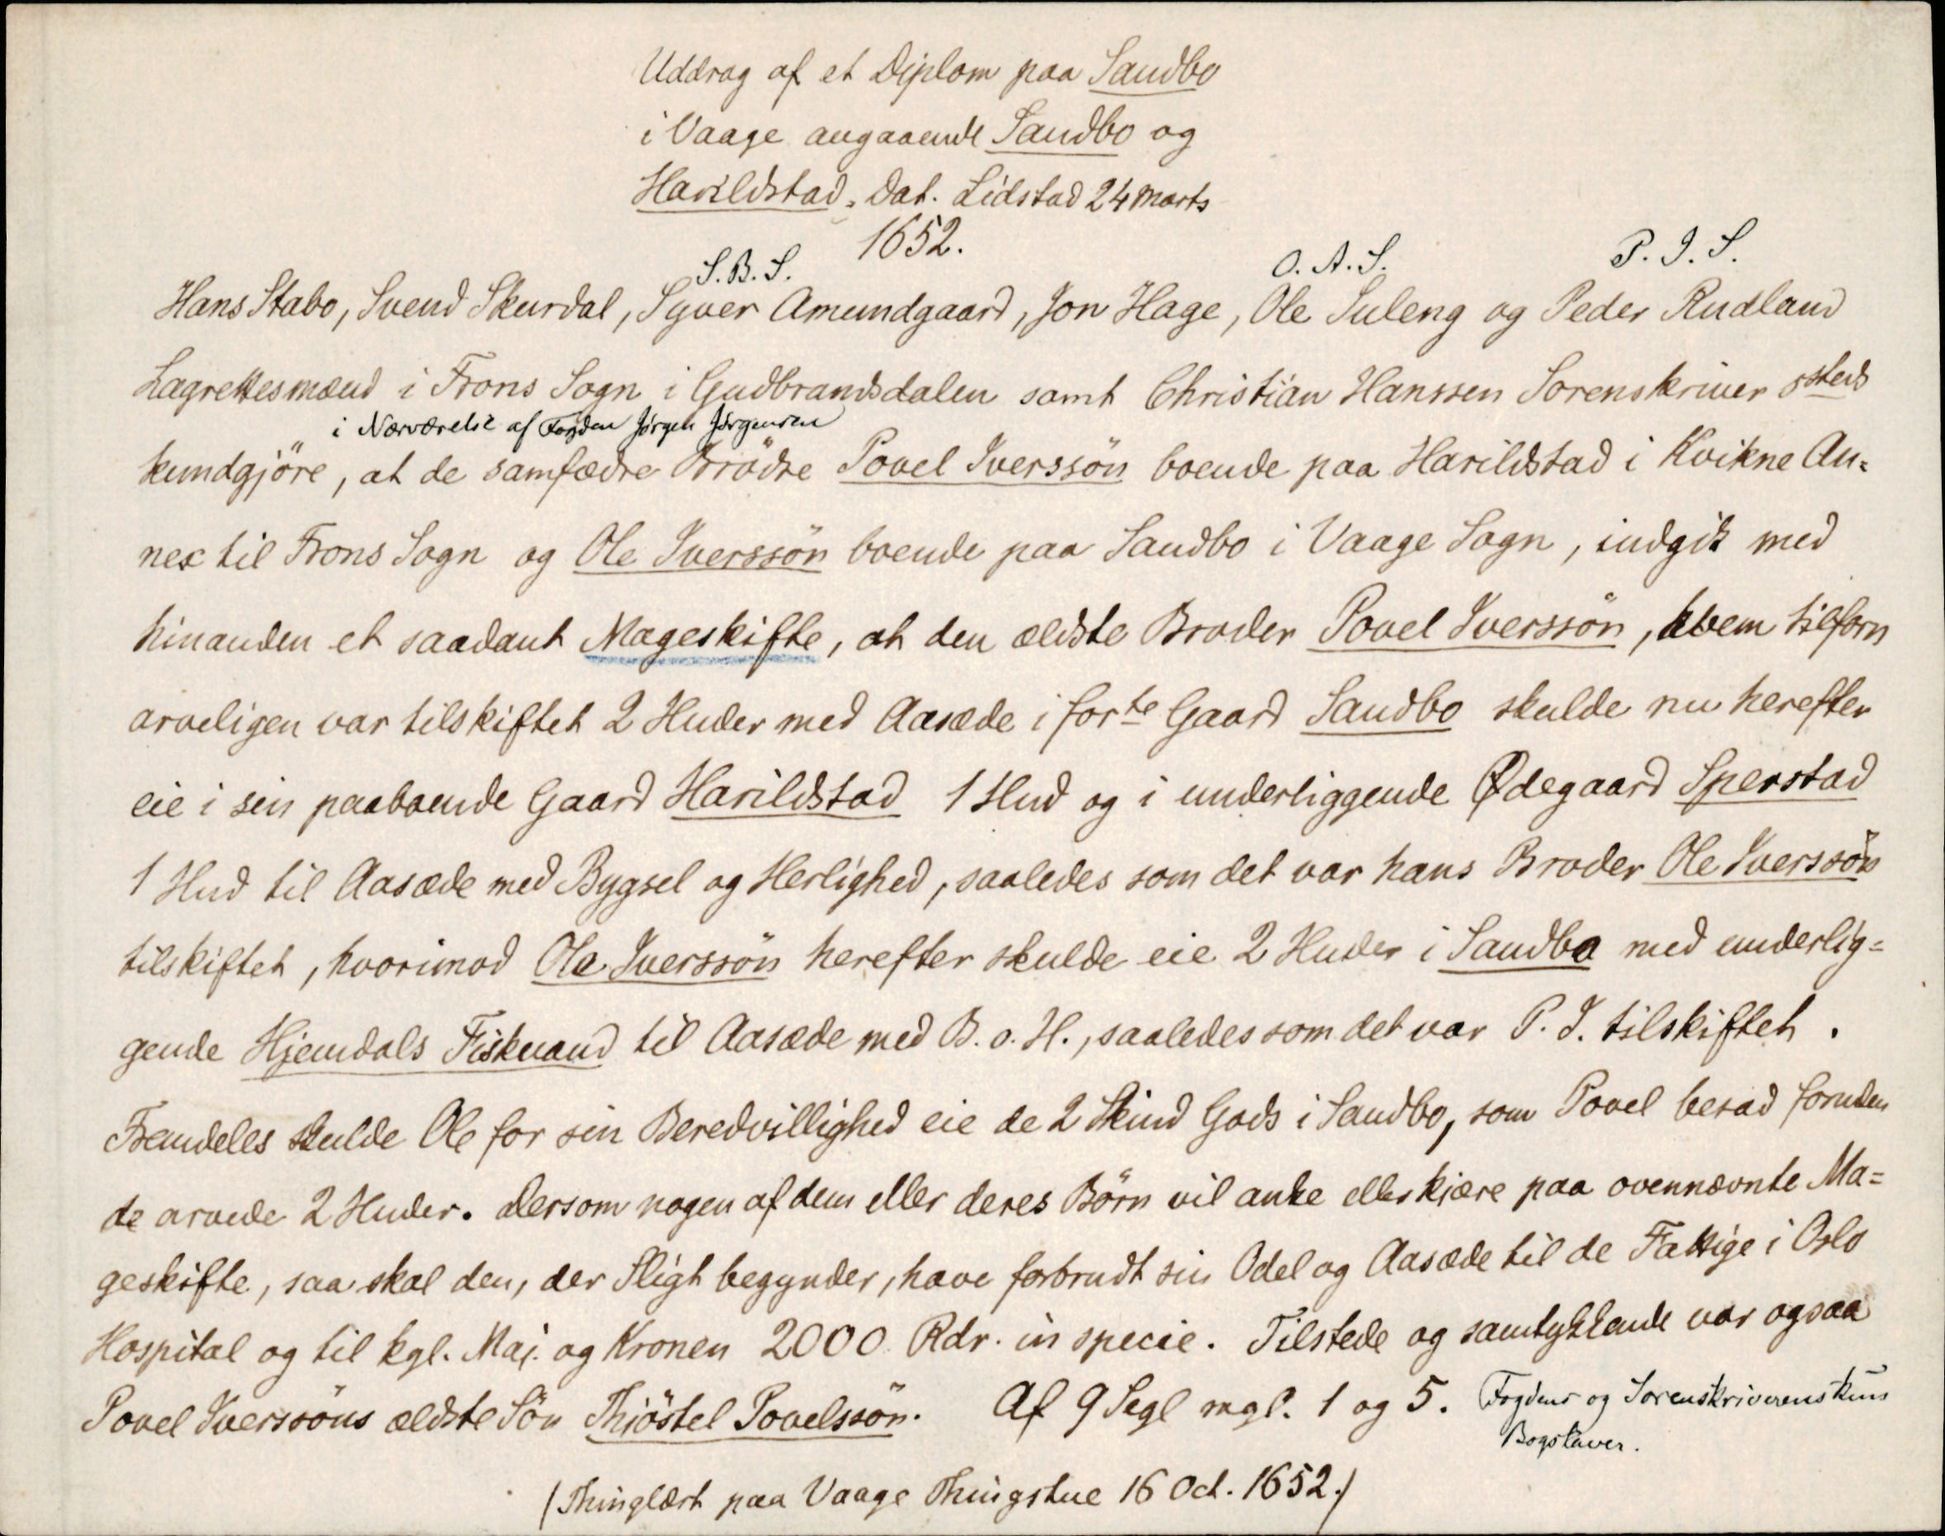 Uddrag af et Diplom paa Sandbo
i Vaage angaaende Sandbo og
Harildstad. Dat. Lidstad 24 Marts
1652.
S.B.S. O.A.S. P.I.S.
Hans Stabo, Svend Skurdal, Syver Amundgaard, Jon Hage, Ole Suleng og Peder Rudland
Lagrettesmænd i Frons Sogn i Gudbrandsdalen samt Christian Hanssen Sorenskriver ssteds
i Nærværelse af Fogden Jørgen Jørgensen
kundgjöre, at de samfædre Brödre Povel Iverssön boende paa Harildstad i Kvikne An-
nex til Frons Sogn og Ole Iverssön boende paa Sandbo i Vaage Sogn, indgik med
hinanden et saadant Mageskifte, at den ældste Broder Povel Iverssön, hvem tilforn
arveligen var tilskiftet 2 Huder med Aasæde i forte Gaard Sandbo skulde nu herefter
eie i sin paaboende Gaard Harildstad 1 Hud og i underliggende Ødegaard Sperstad
1 Hud til Aasæde med Bygsel og Herlighed, saaledes som det var hans Broder Ole Iverssön
tilskiftet, hvorimod Ole Iverssön herefter skulde eie 2 Huder i Sandbo med underlig-
gende Hjemdals Fiskvand til Aasæde med B. o. H., saaledes som det var P. I. tilskiftet.
Fremdeles skulde Ole for sin Beredvillighed eie de 2 Skind Gods i Sandbo, som Povel besad foruden
de arvede 2 Huder. Dersom nogen af dem eller deres Börn vil anke eller kjære paa ovennævnte Ma-
geskifte, saa skal den, der Sligt begynder, have forbrudt sin Odel og Aasæde til de Fattige i Oslo
Hospital og til kgl. Maj. og Kronen 2000 Rdr. in specie. Tilstede og samtykkende var ogsaa
Povel Iverssöns ældste Sön Thjöstel Povelssön. Af 9 Segl mgl. 1 og 5. Fogdens og Sorenskriverens kun
Bogstaver.
(Thinglæst paa Vaage Thingstue 16 Oct. 1652.)